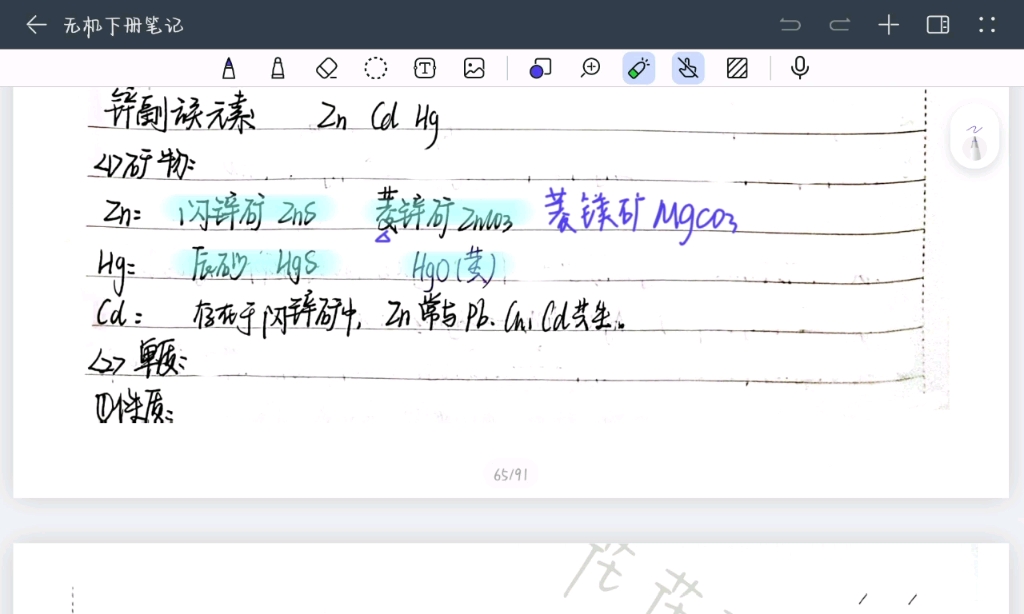 无机下册笔记
锌副族元素 Zn Cd Hg
<1>矿物:
Zn: 闪锌矿 ZnS 菱锌矿 ZnCO3 菱镁矿 MgCO3
Hg: 辰砂 HgS HgO(黄)
Cd: 存在于闪锌矿中, Zn常与Pb、Cu、Cd共生。
<2>单质:
①性质:
65/91